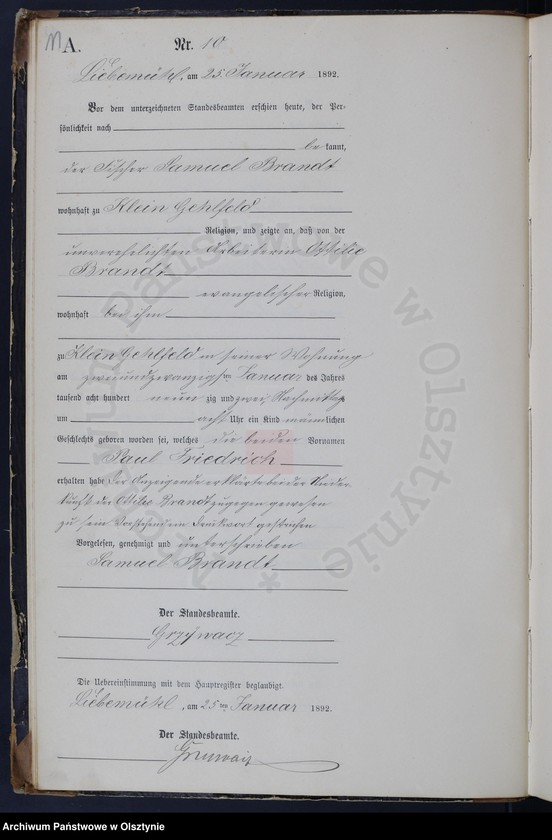 A.
Nr. 10
Liebemühl, am 25. Januar 1892.
Vor dem unterzeichneten Standesbeamten erschien heute, der Per-
sönlichkeit nach
be kannt,
der Fischer Samuel Brandt
wohnhaft zu Klein Gehlfeld
Religion, und zeigte an, daß von der
unverehelichten Arbeiterin Ottilie
Brandt
evangelischer Religion,
wohnhaft bei ihm
zu Klein Gehlfeld in seiner Wohnung
am zweiundzwanzigsten Januar des Jahres
tausend acht hundert neun zig und zwei, Nachmittags
um acht Uhr ein Kind männlichen
Geschlechts geboren worden sei, welches die beiden Vornamen
Paul Friedrich
erhalten habe Der Anzeigende erklärte bei der Nieder
kunft der Ottilie Brandt zugegen gewesen
zu sein Vorstehend ein Druckwort gestrichen
Vorgelesen, genehmigt und unterschrieben
Samuel Brandt
Der Standesbeamte.
Grzywacz
Die Uebereinstimmung mit dem Hauptregister beglaubigt.
Liebemühl, am 25ten Januar 1892.
Der Standesbeamte.
Archiwum Państwowe w Olsztynie
Archiwum Państwowe w Olsztynie